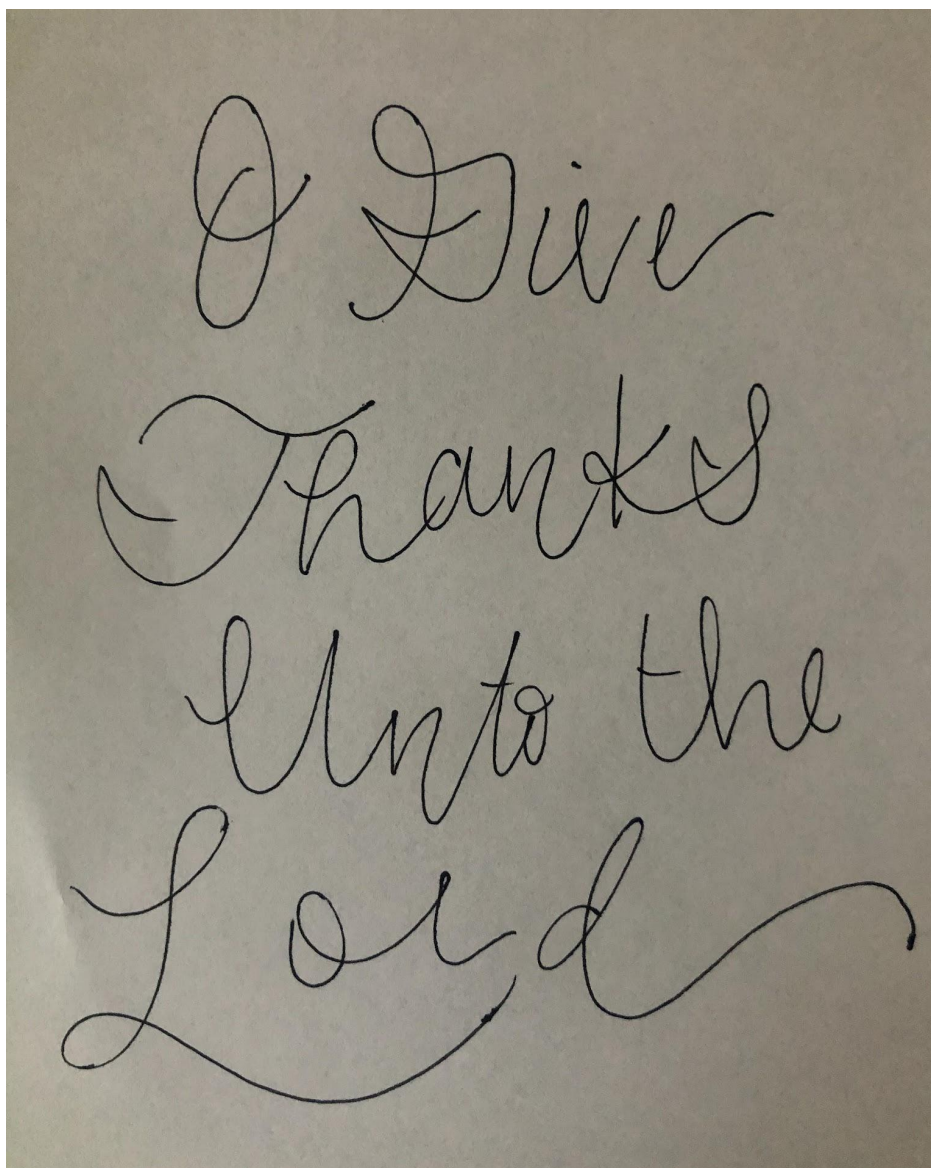 O Give
Thanks
Unto the
Lord